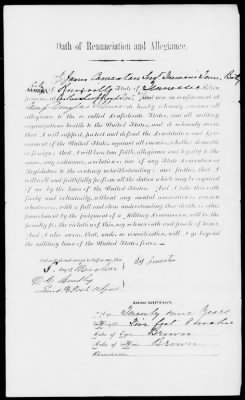 Oath of Renunciation and Allegiance.
I James
of Knoxville State of Tennessee
prisoner at and now in confinement at
Camp Douglas Illinois do hereby solemnly renounce all
allegiance to the so called Confederate States, and all military
organizations hostile to the United States, and do solemnly swear
that I will support, protect and defend the Constitution and Govern-
ment of the United States against all enemies, whether domestic
or foreign; that I will bear true faith, allegiance and loyalty to the
same, any ordinance, resolution or law of any State Convention or
Legislature to the contrary notwithstanding; and further, that I
will well and faithfully perform all the duties which may be required
of me by the laws of the United States. And I take this oath
freely and voluntarily, without any mental reservation or evasion
whatever, with a full and clear understanding that death, or other
punishment by the judgment of a Military Commission, will be the
penalty for the violation of this, my solemn oath and parole of honor.
And I also swear, that, under no consideration, will I go beyond
the military lines of the United States forces.
Subscribed and sworn to before me, this
day of
DESCRIPTION.
Age Twenty nine Years
Height Five feet inches
Color of Eyes Brown
Color of Hair Brown